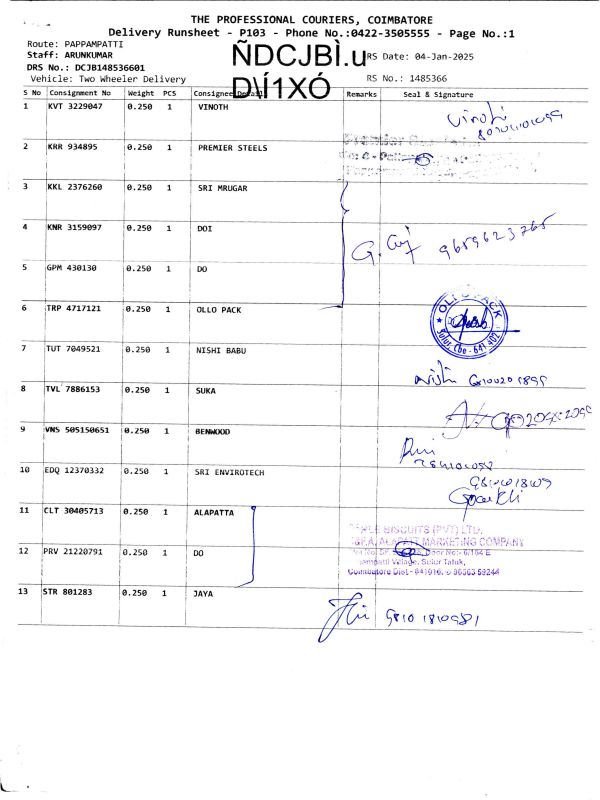 THE PROFESSIONAL COURIERS, COIMBATORE
Delivery Runsheet - P103 - Phone No.:0422-3505555 - Page No.:1
Route: PAPPAMPATTI
Staff: ARUNKUMAR
DRS No.: DCJB148536601
Vehicle: Two Wheeler Delivery
ÑDCJBÌ.u
D\Í1XÓ
RS Date: 04-Jan-2025
RS No.: 1485366
S No Consignment No Weight PCS Consignee Detail Remarks Seal & Signature
1 KVT 3229047 0.250 1 VINOTH
2 KRR 934895 0.250 1 PREMIER STEELS
3 KKL 2376260 0.250 1 SRI MRUGAR
4 KNR 3159097 0.250 1 DOI
G. 9659623765
5 GPM 430130 0.250 1 DO
6 TRP 4717121 0.250 1 OLLO PACK
OLLO PACK
Sulur, Cbe - 641 402
7 TUT 7049521 0.250 1 NISHI BABU
8 TVL 7886153 0.250 1 SUKA
9 VNS 505150651 0.250 1 BENWOOD
10 EDQ 12370332 0.250 1 SRI ENVIROTECH
11 CLT 30405713 0.250 1 ALAPATTA
BISCUITS (PVT) LTD,
MARKETING COMPANY
12 PRV 21220791 0.250 1 DO
Door No:- 6/164 E
Village, Sulur Taluk,
Coimbatore Dist - 641016.
13 STR 801283 0.250 1 JAYA